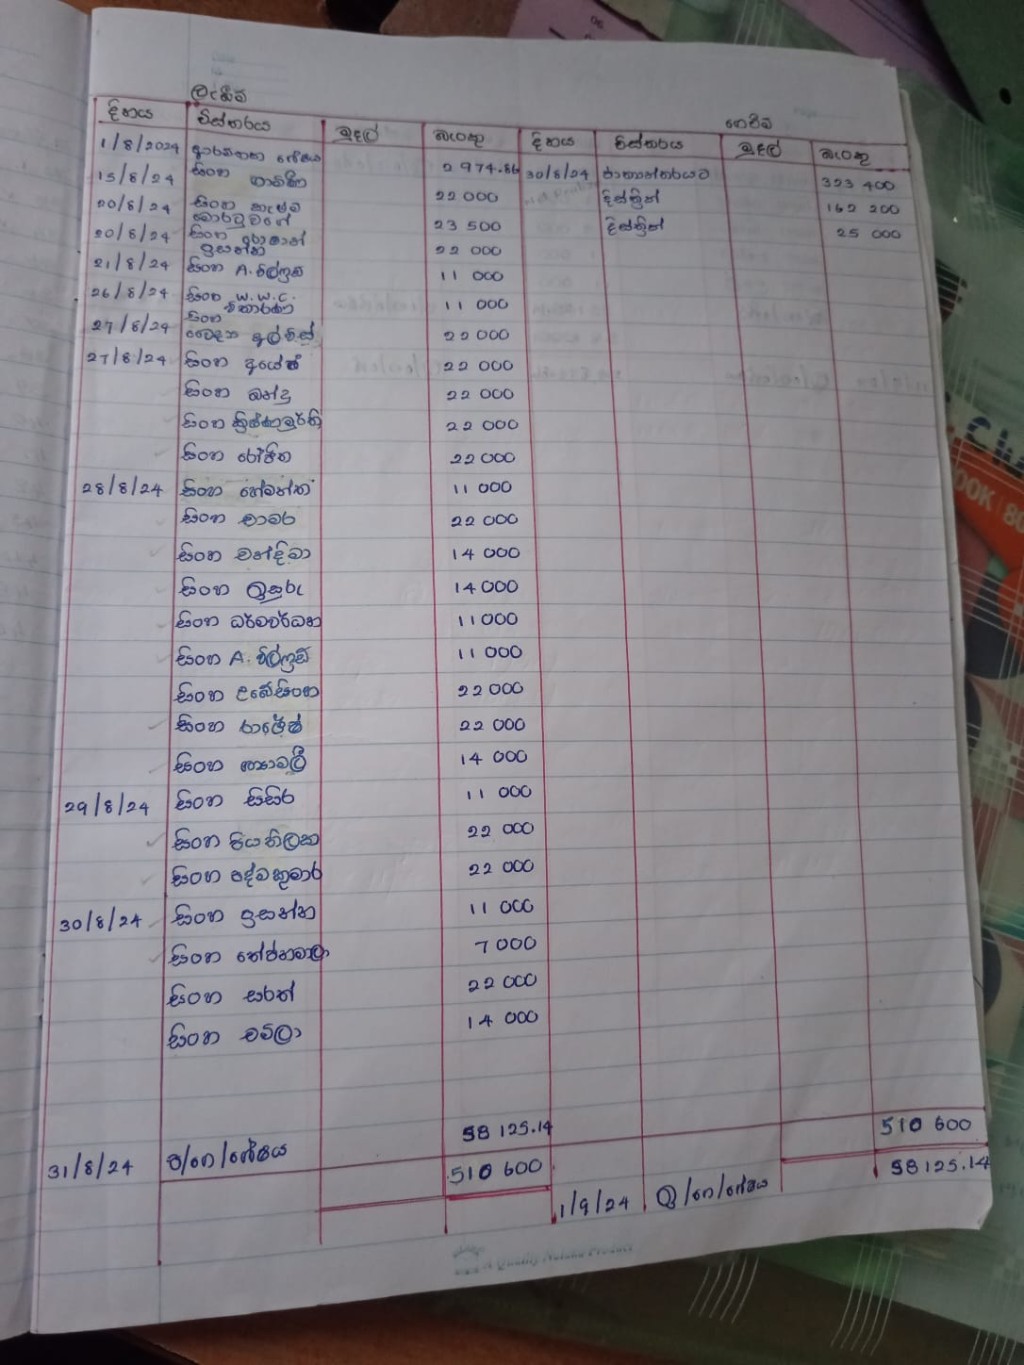 ලැබීම්
ගෙවීම්
දිනය විස්තරය මුදල් බැංකු දිනය විස්තරය මුදල් බැංකු
1/8/2024 ආරම්භක ශේෂය 2 974.86 30/8/24 323 400
15/8/24 සිංහ ගාමිණී 22 000 දිස්ත්‍රික් 162 200
20/8/24 සිංහ 23 500 දිස්ත්‍රික් 25 000
20/8/24 සිංහ 22 000
21/8/24 සිංහ A. විල්ෆ්‍රඩ් 11 000
26/8/24 සිංහ W.W.C. 11 000
27/8/24 සිංහ 22 000
27/8/24 සිංහ අජේෂ් 22 000
සිංහ බන්දු 22 000
සිංහ ක්‍රිෂ්ණමූර්ති 22 000
සිංහ රෝහිත 22 000
28/8/24 සිංහ හේමන්ත 11 000
සිංහ චාමර 22 000
සිංහ චන්දිමා 14 000
සිංහ ඉසුරු 14 000
සිංහ ධර්මවර්ධන 11 000
සිංහ A. විල්ෆ්‍රඩ් 11 000
සිංහ උබේසිංහ 22 000
සිංහ රාජේෂ් 22 000
සිංහ 14 000
29/8/24 සිංහ සිසිර 11 000
සිංහ පියතිලක 22 000
සිංහ පද්මකුමාර 22 000
30/8/24 සිංහ ප්‍රසන්න 11 000
සිංහ 7 000
සිංහ සරත් 22 000
සිංහ චම්ලා 14 000
31/8/24 ප/ගෙ/ශේෂය 58 125.14 510 600
510 600
1/9/24 ඉ/ගෙ/ශේෂය 58125.14